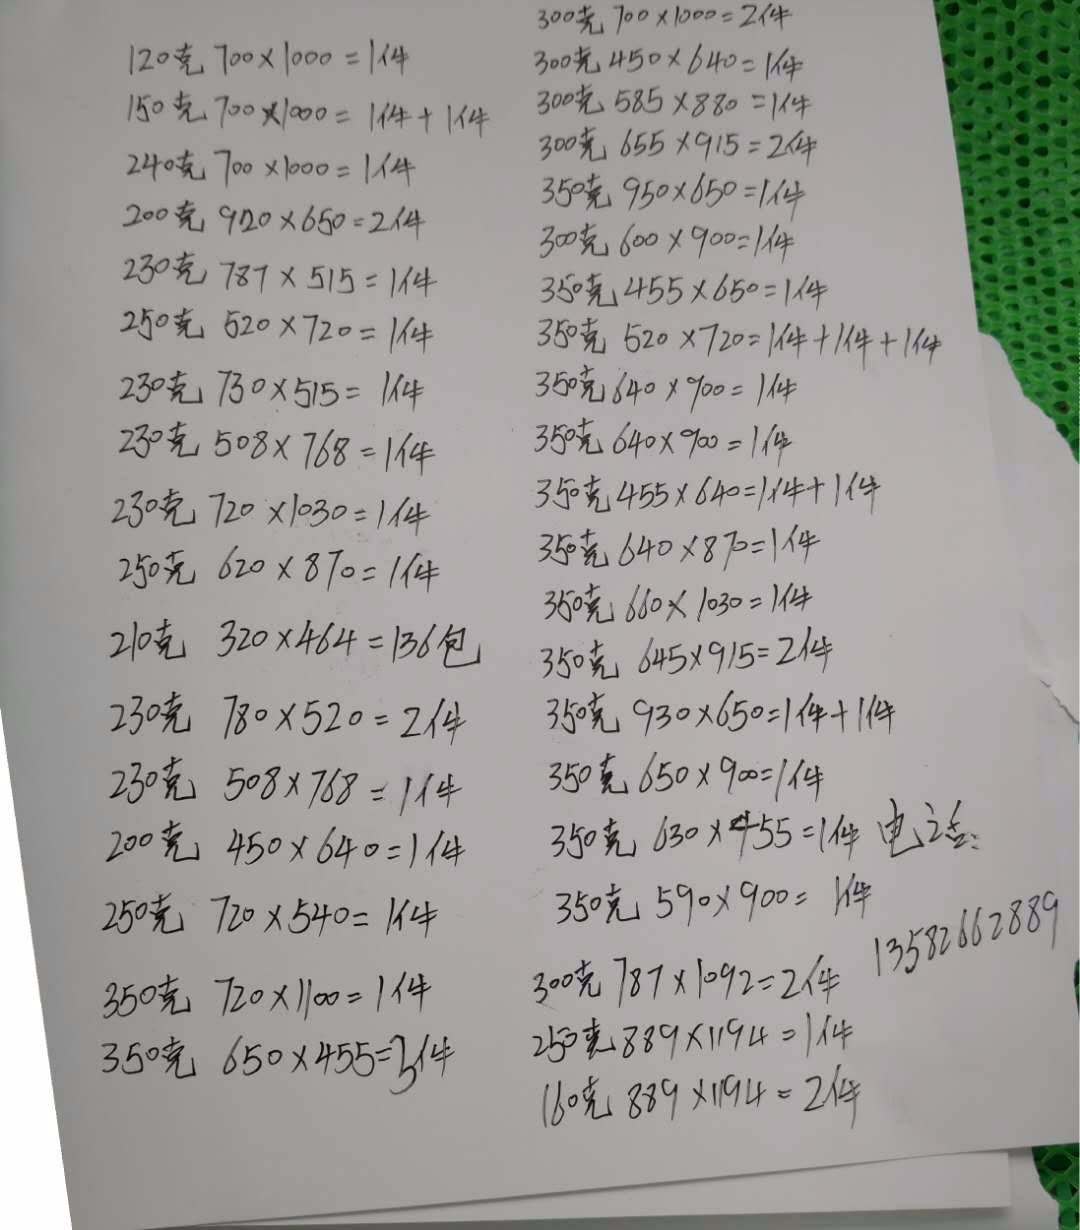 120克 700×1000=1件
150克 700×1000=1件+1件
240克 700×1000=1件
200克 920×650=2件
230克 787×515=1件
250克 520×720=1件
230克 730×515=1件
230克 508×768=1件
230克 720×1030=1件
250克 620×870=1件
210克 320×464=136包
230克 780×520=2件
230克 508×768=1件
200克 450×640=1件
250克 720×540=1件
350克 720×1100=1件
350克 650×455=3件
300克 700×1000=2件
300克 450×640=1件
300克 585×880=1件
300克 655×915=2件
350克 950×650=1件
300克 600×900=1件
350克 455×650=1件
350克 520×720=1件+1件+1件
350克 640×900=1件
350克 640×900=1件
350克 455×640=1件+1件
350克 640×870=1件
350克 660×1030=1件
350克 645×915=2件
350克 930×650=1件+1件
350克 650×900=1件
350克 630×455=1件 电话:
350克 590×900=1件
13582662889
300克 787×1092=2件
250克 889×1194=1件
160克 889×1194=2件